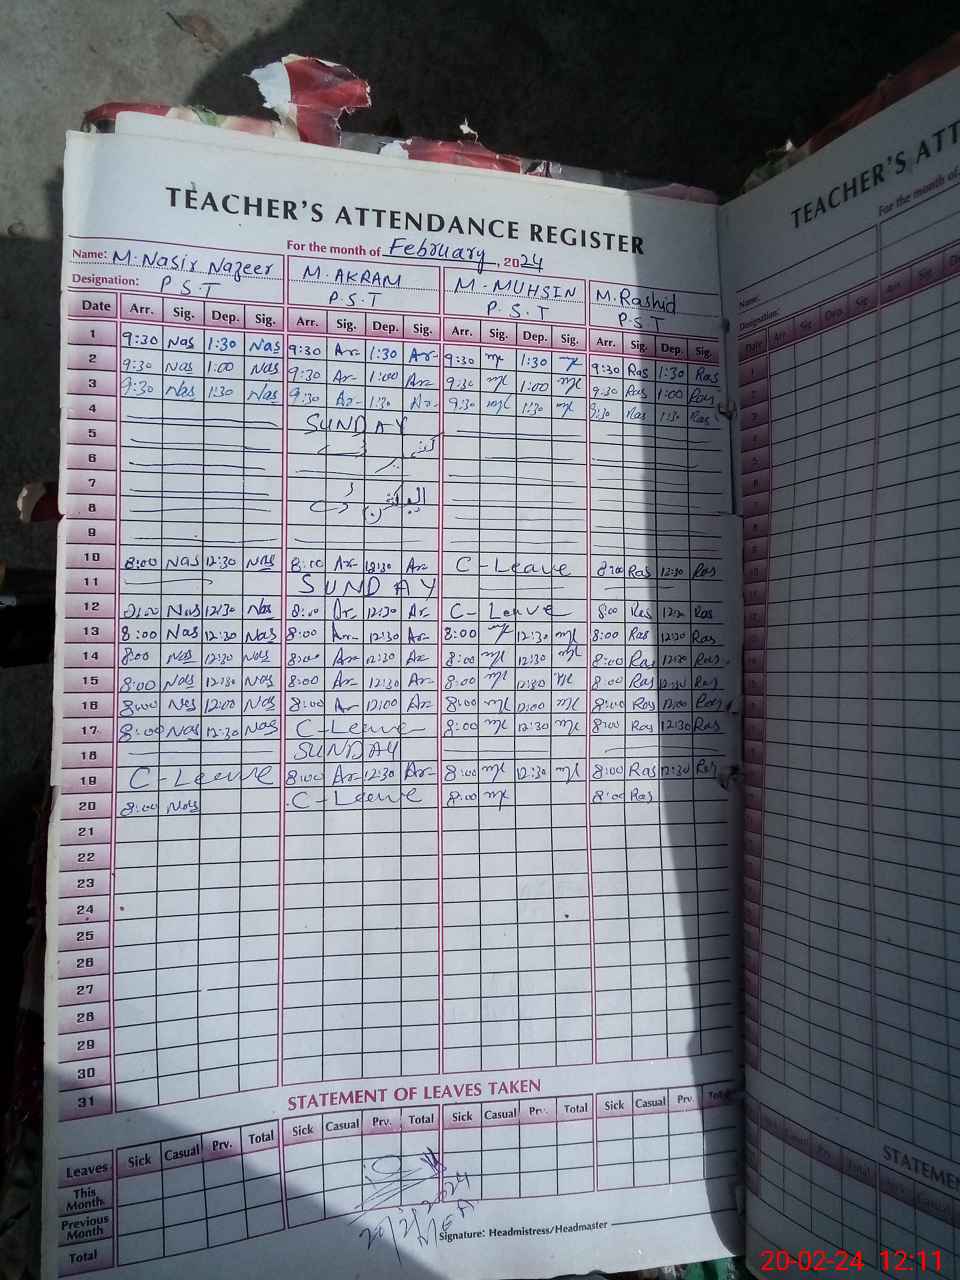 TEACHER'S ATTENDANCE REGISTER
For the month of February, 2024
Name: M. Nasir Nazeer M. AKRAM M. MUHSIN M. Rashid
Designation: P.S.T P.S.T P.S.T P.S.T
Date Arr. Sig. Dep. Sig. Arr. Sig. Dep. Sig. Arr. Sig. Dep. Sig. Arr. Sig. Dep. Sig.
1 9:30 Nas 1:30 Nas 9:30 Ar 1:30 Ar 9:30 1:30 9:30 Ras 1:30 Ras
2 9:30 Nas 1:00 Nas 9:30 Ar 1:00 Ar 9:30 1:00 9:30 Ras 1:00 Ras
3 9:30 Nas 1:30 Nas 9:30 Ar 1:30 Ar 9:30 1:30 9:30 Ras 1:30 Ras
4 SUNDAY
5
6
7
8
9
10 8:00 Nas 12:30 Nas 8:00 Ar 12:30 Ar C-Leave 8:00 Ras 12:30 Ras
11 SUNDAY
12 Nas 12:30 Nas 8:00 Ar 12:30 Ar C-Leave 8:00 Ras Ras
13 8:00 Nas 12:30 Nas 8:00 Ar 12:30 Ar 8:00 12:30 8:00 Ras 12:30 Ras
14 8:00 Nas 12:30 Nas 8:00 Ar 12:30 Ar 8:00 12:30 8:00 Ras 12:30 Ras
15 8:00 Nas 12:30 Nas 8:00 Ar 12:30 Ar 8:00 12:30 8:00 Ras 12:30 Ras
16 8:00 Nas 12:00 Nas 8:00 Ar 12:00 Ar 8:00 12:00 8:00 Ras 12:00 Ras
17 8:00 Nas 12:30 Nas C-Leave 8:00 12:30 8:00 Ras 12:30 Ras
18 SUNDAY
19 C-Leave 8:00 Ar 12:30 Ar 8:00 12:30 8:00 Ras 12:30 Ras
20 8:00 Nas C-Leave 8:00 8:00 Ras
21
22
23
24
25
26
27
28
29
30
31
STATEMENT OF LEAVES TAKEN
Leaves Sick Casual Prv. Total Sick Casual Prv. Total Sick Casual Prv. Total Sick Casual Prv. Total
This Month
Previous Month
Total
20/2/2024
Signature: Headmistress/Headmaster
TEACHER'S ATT
For the month of
Name:
Designation:
Date Arr Sig. Dep. Sig. Arr. Sig.
STATEMEN
20-02-24 12:11